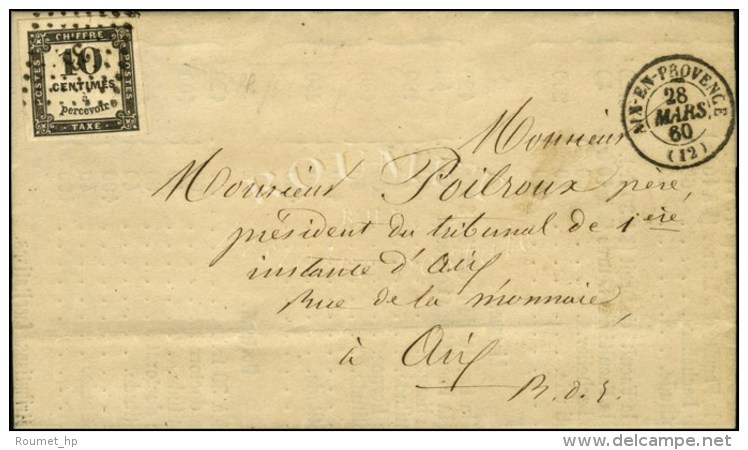 CHIFFRE
POSTES
10
CENTIMES
à
percevoir
POSTES
TAXE
AIX-EN-PROVENCE
28
MARS
60
(12)
ROUMET
Monsieur
Monsieur Poilroux père,
président du tribunal de 1ère
instance d'Aix
Rue de la monnaie,
à Aix
B. d. R.
Roumet_hp
delcampe.net